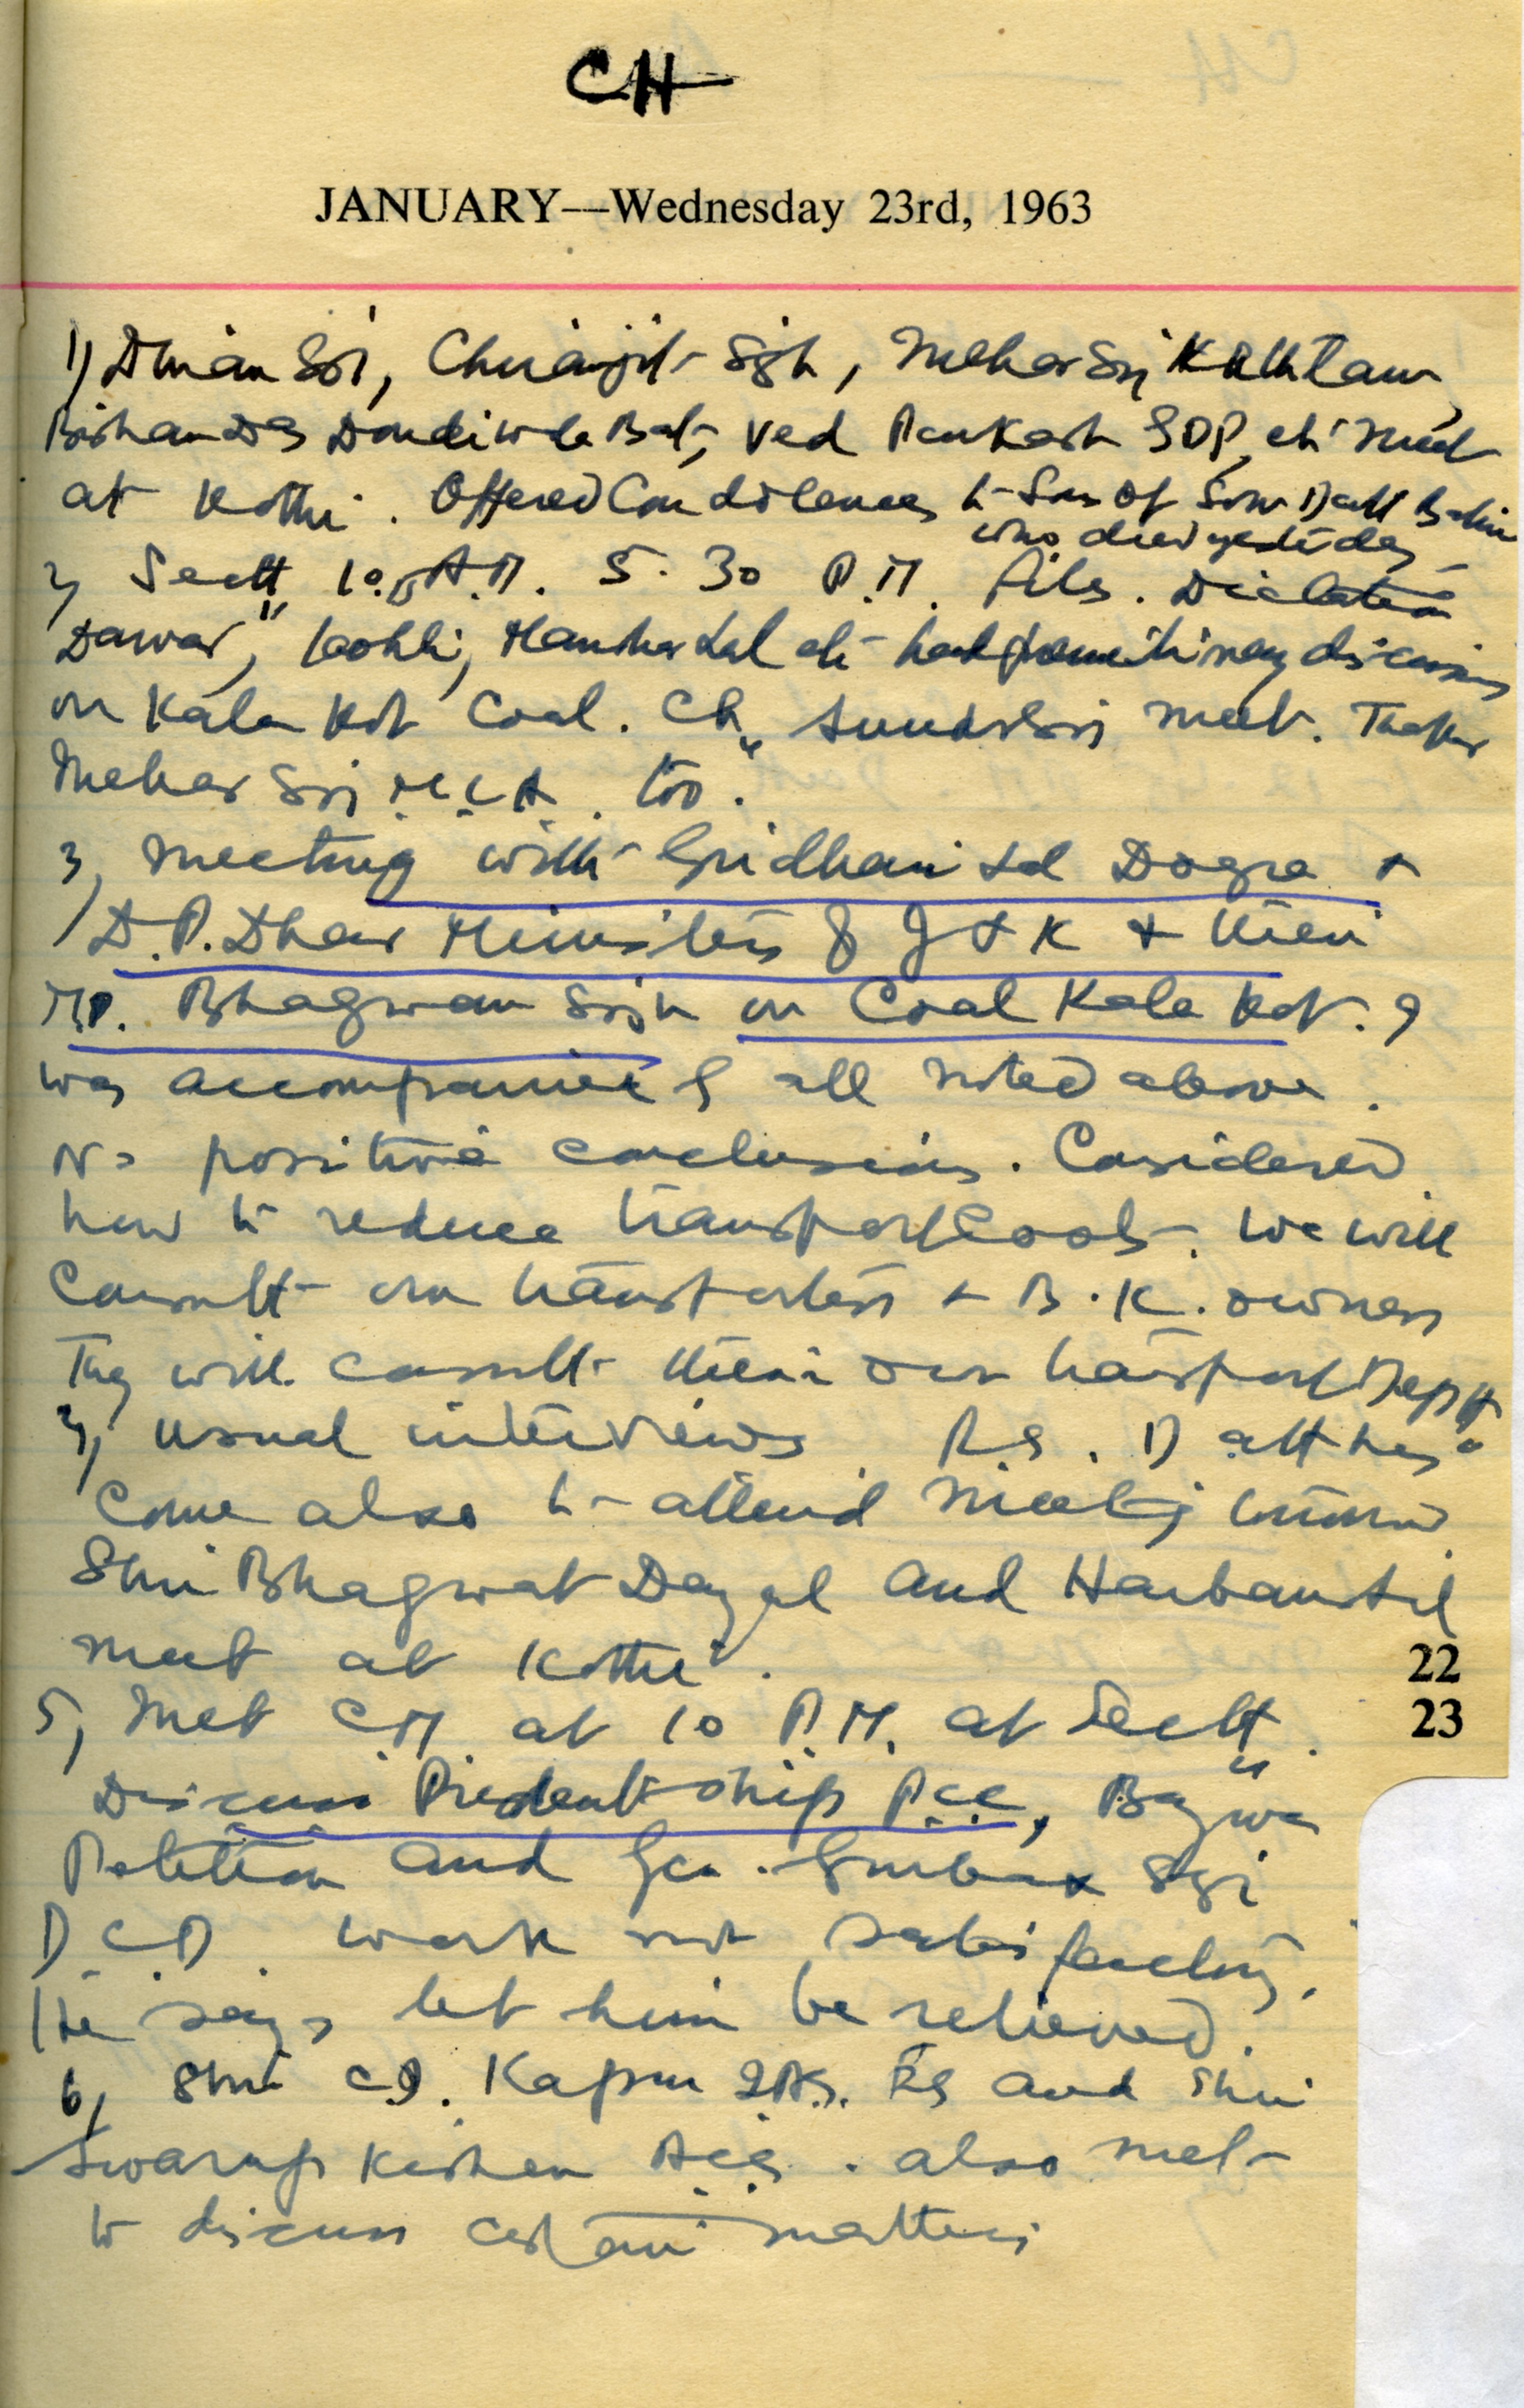 CH
JANUARY—Wednesday 23rd, 1963
1) Dhian Sgi, Chiranjit Sgh, Mehar Sgi
Bishan Das Ved Parkash SDP, etc meet
at Kothi. Offered Condolences to Son of Som Datt
who died yesterday
2) Sectt 10 A.M. 5.30 P.M. files. Dictation
Dawar, Kohli, Manohar Lal etc had preliminary discussions
on Kala Kot Coal. Ch Sunder Sgi meet. Thakur
Mehar Sgi M.L.A. too.
3) meeting with Gridhari Lal Dogra +
D.P. Dhar Ministers of J & K + their
M.D. Bhagwan Sgh on Coal Kala Kot. I
was accompanied by all noted above.
No positive conclusions. Considered
how to reduce transport costs. We will
Consult our transporters + B.K. owners
They will consult their own transport Deptt
4) usual interviews R.S. Datt has
Come also to attend meeting tomorrow
Shri Bhagwat Dayal and Harbans Lal
meet at Kothi.
22
5) Met C.M. at 10 P.M. at Sectt.
23
Discuss Presidentship P.C.C, Bajwa
Petition and Gen. Gurbax Sgi
D.C.D. work not satisfactory.
He says let him be relieved.
6) Shri Kapur I.A.S. and Shri
Swarup Kishen also met
to discuss certain matters